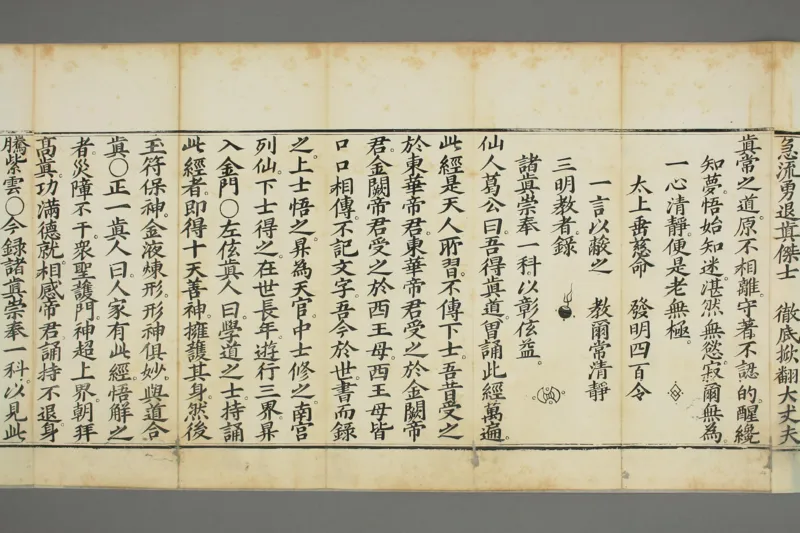 急流勇退眞傑士　徹底掀翻大丈夫
眞常之道。原不相離。守著不認。的醒纔
知夢悟始知迷。湛然無慾。寂爾無為。
一心清靜。便是老無極。
太上垂慈命　發明四百令
一言以蔽之　教爾常清靜
三明教者錄
諸眞崇奉一科。以彰俭益。
仙人葛公曰。吾得眞道。曾誦此經萬遍。
此經是天人所習。不傳下士。吾昔受之
於東華帝君。東華帝君受之於金闕帝
君。金闕帝君受之於西王母。西王母皆
口口相傳。不記文字。吾今於世。書而錄
之。上士悟之。昇為天官。中士修之。南宮
列仙。下士得之。在世長年。遊行三界。昇
入金門○左㢸眞人曰。學道之士。持誦
此經者。即得十天善神。擁護其身。然後
玉符保神。金液煉形。形神俱妙。與道合
眞○正一眞人曰。人家有此經。悟解之
者。災障不干。衆聖護門。神超上界。朝拜
高眞。功滿德就。相感帝君。誦持不退。身
騰紫雲○今錄諸眞崇奉一科。以見此